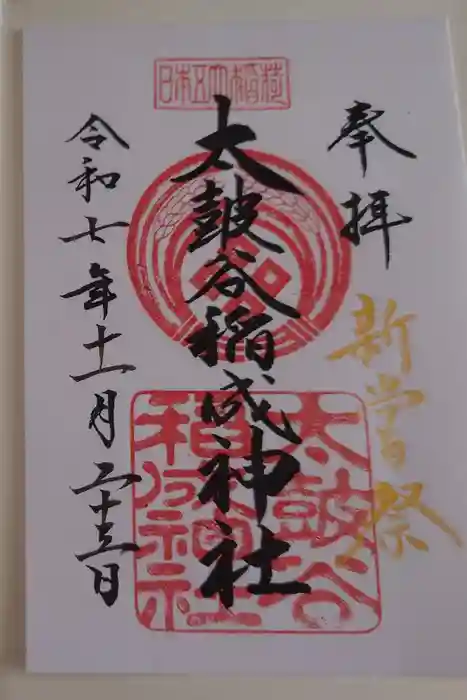 奉拝
新嘗祭
日本五大稲荷
太皷谷稲成神社
太皷谷稲成神社
令和七年十一月二十三日